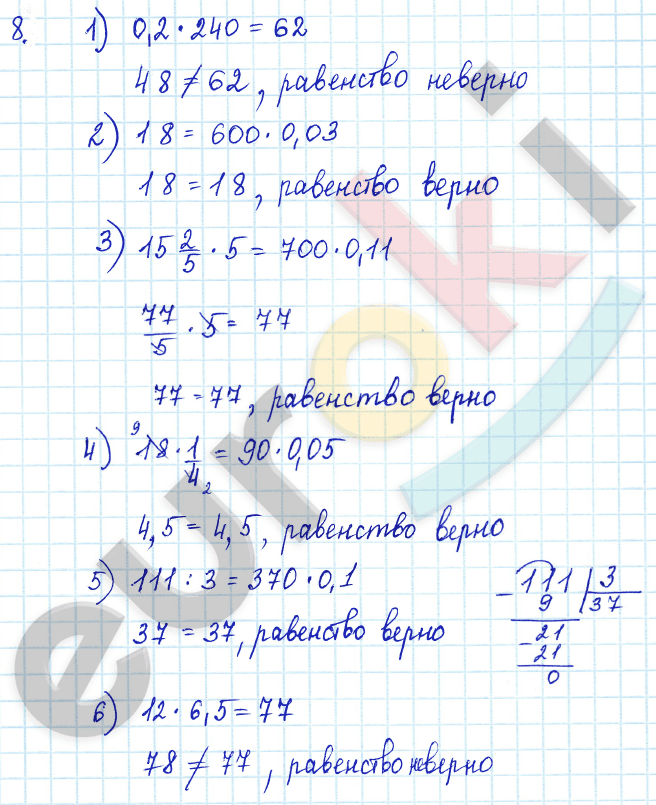 8. 1) 0,2 · 240 = 62
48 ≠ 62, равенство неверно
2) 18 = 600 · 0,03
18 = 18, равенство верно
3) 15 2/5 · 5 = 700 · 0,11
77/5 · 5 = 77
77 = 77, равенство верно
9
4) 18 · 1/4 = 90 · 0,05
2
4,5 = 4,5, равенство верно
5) 111 : 3 = 370 · 0,1
37 = 37, равенство верно
- 111 | 3
9 37
- 21
21
0
6) 12 · 6,5 = 77
78 ≠ 77, равенство неверно
euroki